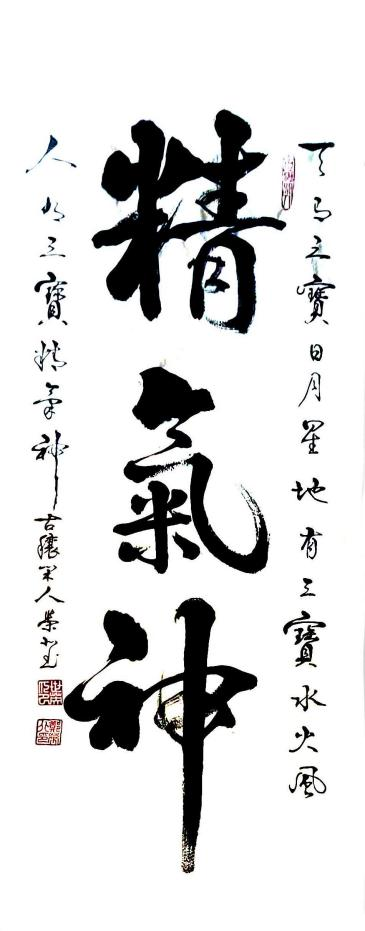 天有三寶日月星地有三寶水火風
精氣神
人有三寶精氣神古穰人榮